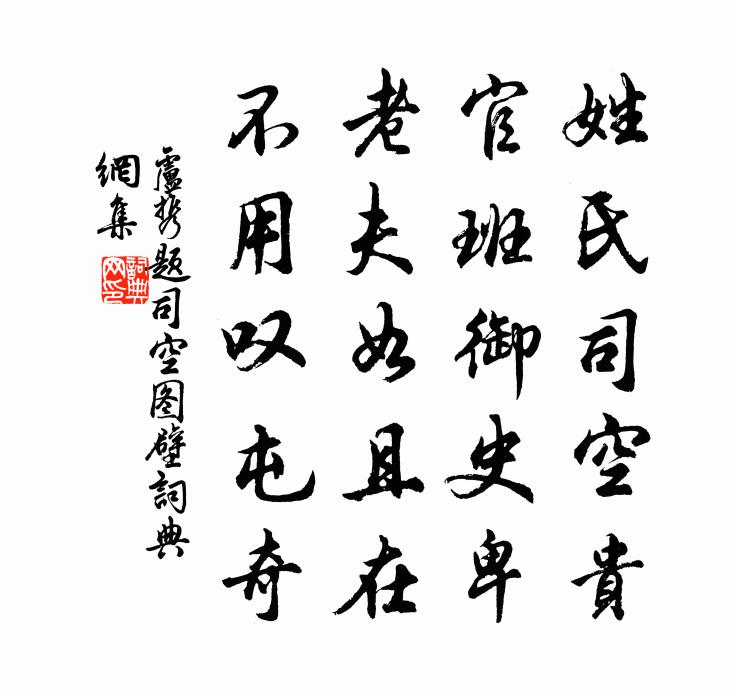 姓氏司空貴
官班御史卑
老夫如且在
不用叹屯奇
盧携题司空图壁詞典
網集
詞典
网印